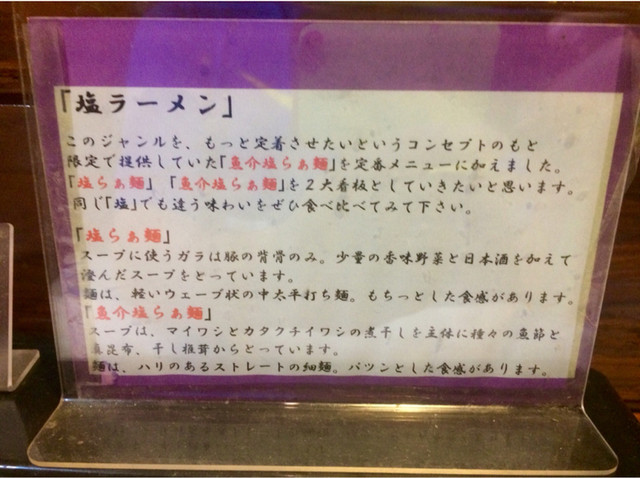 「塩ラーメン」
このジャンルを、もっと定着させたいというコンセプトのもと
限定で提供していた「魚介塩らぁ麺」を定番メニューに加えました。
「塩らぁ麺」「魚介塩らぁ麺」を２大看板としていきたいと思います。
同じ「塩」でも違う味わいをぜひ食べ比べてみて下さい。
「塩らぁ麺」
スープに使うガラは豚の背骨のみ。少量の香味野菜と日本酒を加えて
澄んだスープをとっています。
麺は、軽いウェーブ状の中太平打ち麺。もちっとした食感があります。
「魚介塩らぁ麺」
スープは、マイワシとカタクチイワシの煮干しを主体に種々の魚節と
真昆布、干し椎茸からとっています。
麺は、ハリのあるストレートの細麺。パツンとした食感があります。